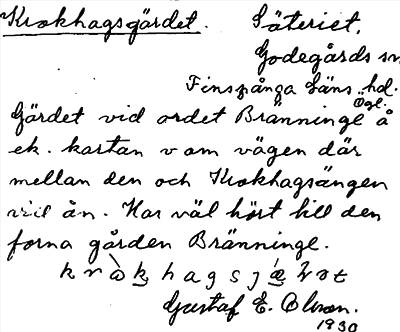 Krokhagsgärdet. Säteriet,
Godegårds sn
Finspånga läns hd.
Ögl.
Gärdet vid ordet Bränninge å
ek. kartan v om vägen där
mellan den och Krokhagsängen
vid ån. Har väl hört till den
forna gården Bränninge.
Gustaf E. Olsson.
1930